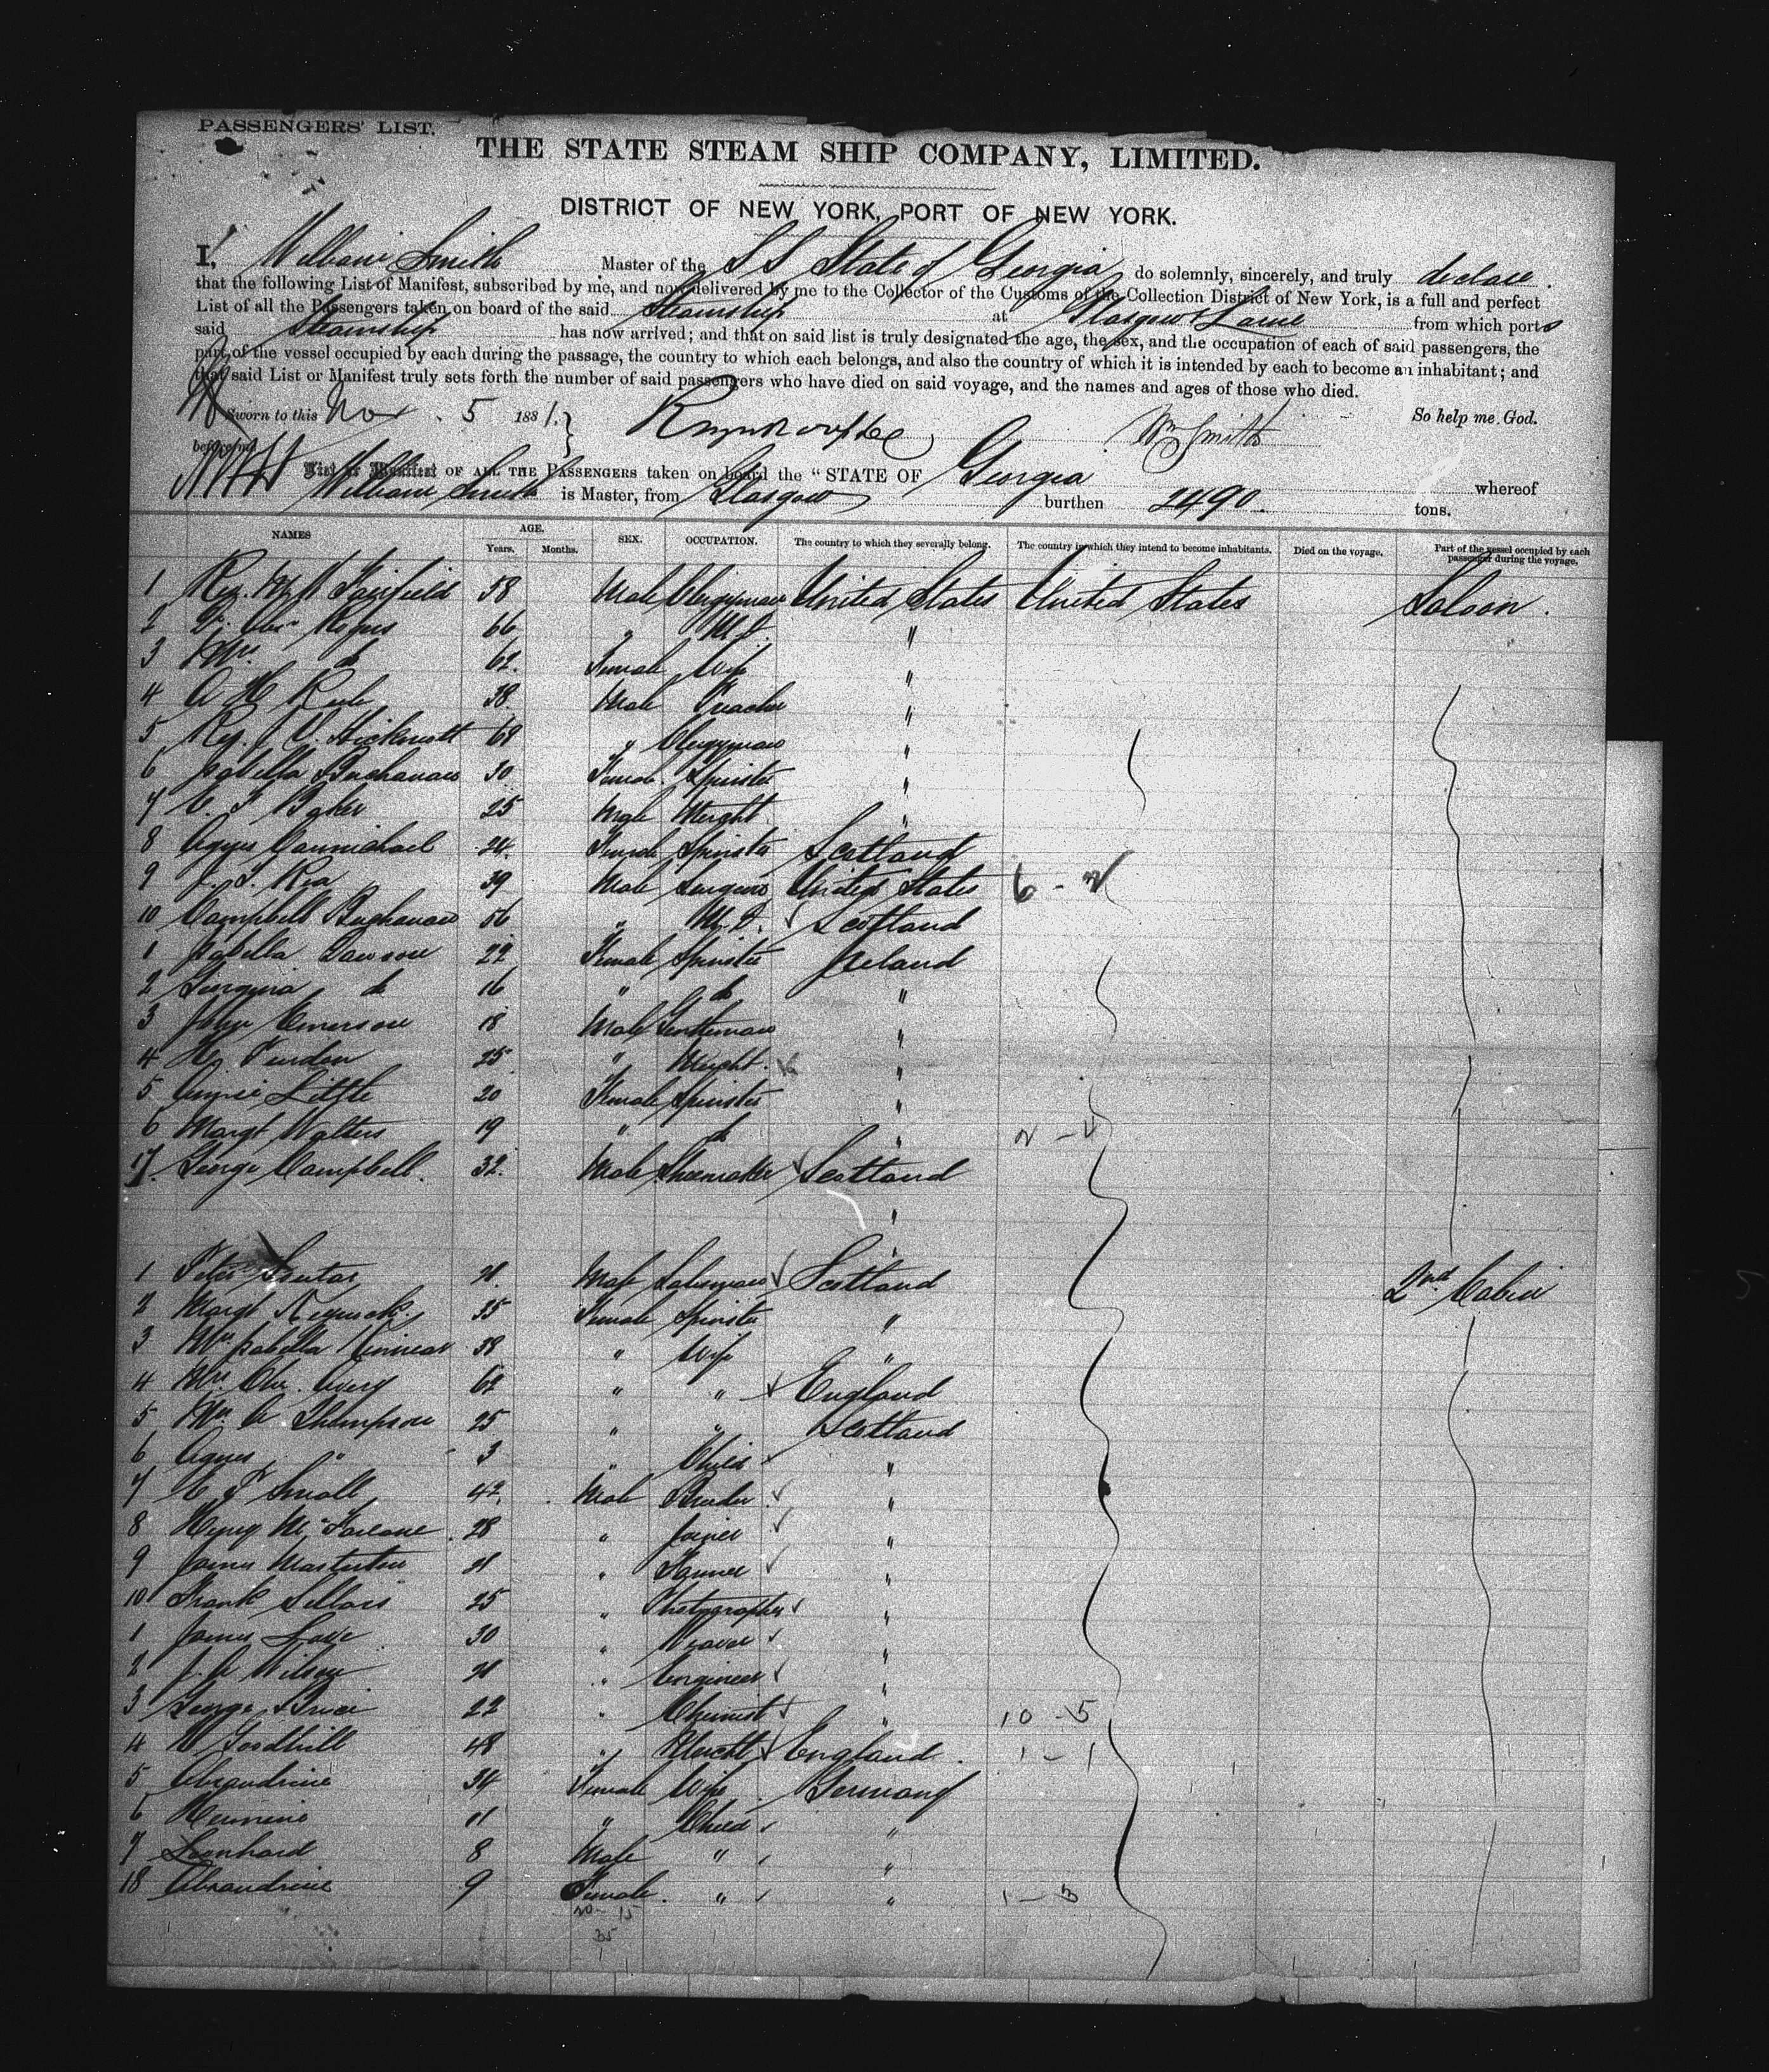 PASSENGERS' LIST.
THE STATE STEAM SHIP COMPANY, LIMITED.
DISTRICT OF NEW YORK, PORT OF NEW YORK.
I, William Smith Master of the S S State of Georgia do solemnly, sincerely, and truly declare
that the following List of Manifest, subscribed by me, and now delivered by me to the Collector of the Customs of the Collection District of New York, is a full and perfect
List of all the Passengers taken on board of the said Steamship at Glasgow & Larne from which ports
said Steamship has now arrived; and that on said list is truly designated the age, the sex, and the occupation of each of said passengers, the
part of the vessel occupied by each during the passage, the country to which each belongs, and also the country of which it is intended by each to become an inhabitant; and
that said List or Manifest truly sets forth the number of said passengers who have died on said voyage, and the names and ages of those who died.
Sworn to this Nov. 5 1881. Wm Smith So help me God.
before me
List or Manifest OF ALL THE PASSENGERS taken on board the "STATE OF Georgia whereof
William Smith is Master, from Glasgow burthen 2490. tons.
NAMES AGE. Years. Months. SEX. OCCUPATION. The country to which they severally belong. The country in which they intend to become inhabitants. Died on the voyage. Part of the vessel occupied by each passenger during the voyage.
1 Fairfield 58 Male Clergyman United States United States Saloon.
2 Dr. Rogers 66 " M.D. "
3 Mrs. do 62. Female Wife "
4 A 38. Male "
5 69 " Clergyman "
6 Isabella Buchanan 30 Female Spinster "
7 C. F Baker 25 Male Mercht "
8 Agnes Carmichael 24. Female Spinster Scotland
9 J. S. Rea 39 Male Surgeon United States 6 -
10 Campbell Buchanan 56 " M.D. Scotland
1 Isabella Dawson 22 Female Spinster Ireland
2 Georgina do 16 " do "
3 John Emerson 18 Male Gentleman "
4 H. Purdon 25 " Mercht. "
5 Annie Little 20 Female Spinster "
6 Margt Walters 19 " do "
17. George Campbell. 32. Male Shoemaker Scotland
"
1 Peter Soutar 21. Male Salesman Scotland 2nd Cabin
2 Margt 35 Female Spinster "
3 Mrs Isabella Kinnear 38 " Wife "
4 Mrs. 62 " " England
5 Mrs. A Thompson 25 " " Scotland
6 Agnes " 3 " Child "
7 C F Small 42. Male "
8 Henry McFarlane 28 " Joiner "
9 James Masterton 21 " "
10 Frank Sellars 25 " Photographer "
1 James Love 30 " Weaver "
2 J. A Wilson 21 " Engineer "
3 George 22 " Chemist " 10 - 5
4 W Goodhill 48 " Mercht England. 1 - 1
5 34 Female Wife Germany
6 11 " Child "
7 Leonhard 8 Male " "
18 9 Female. " " 1 - 3
20 - 15
35